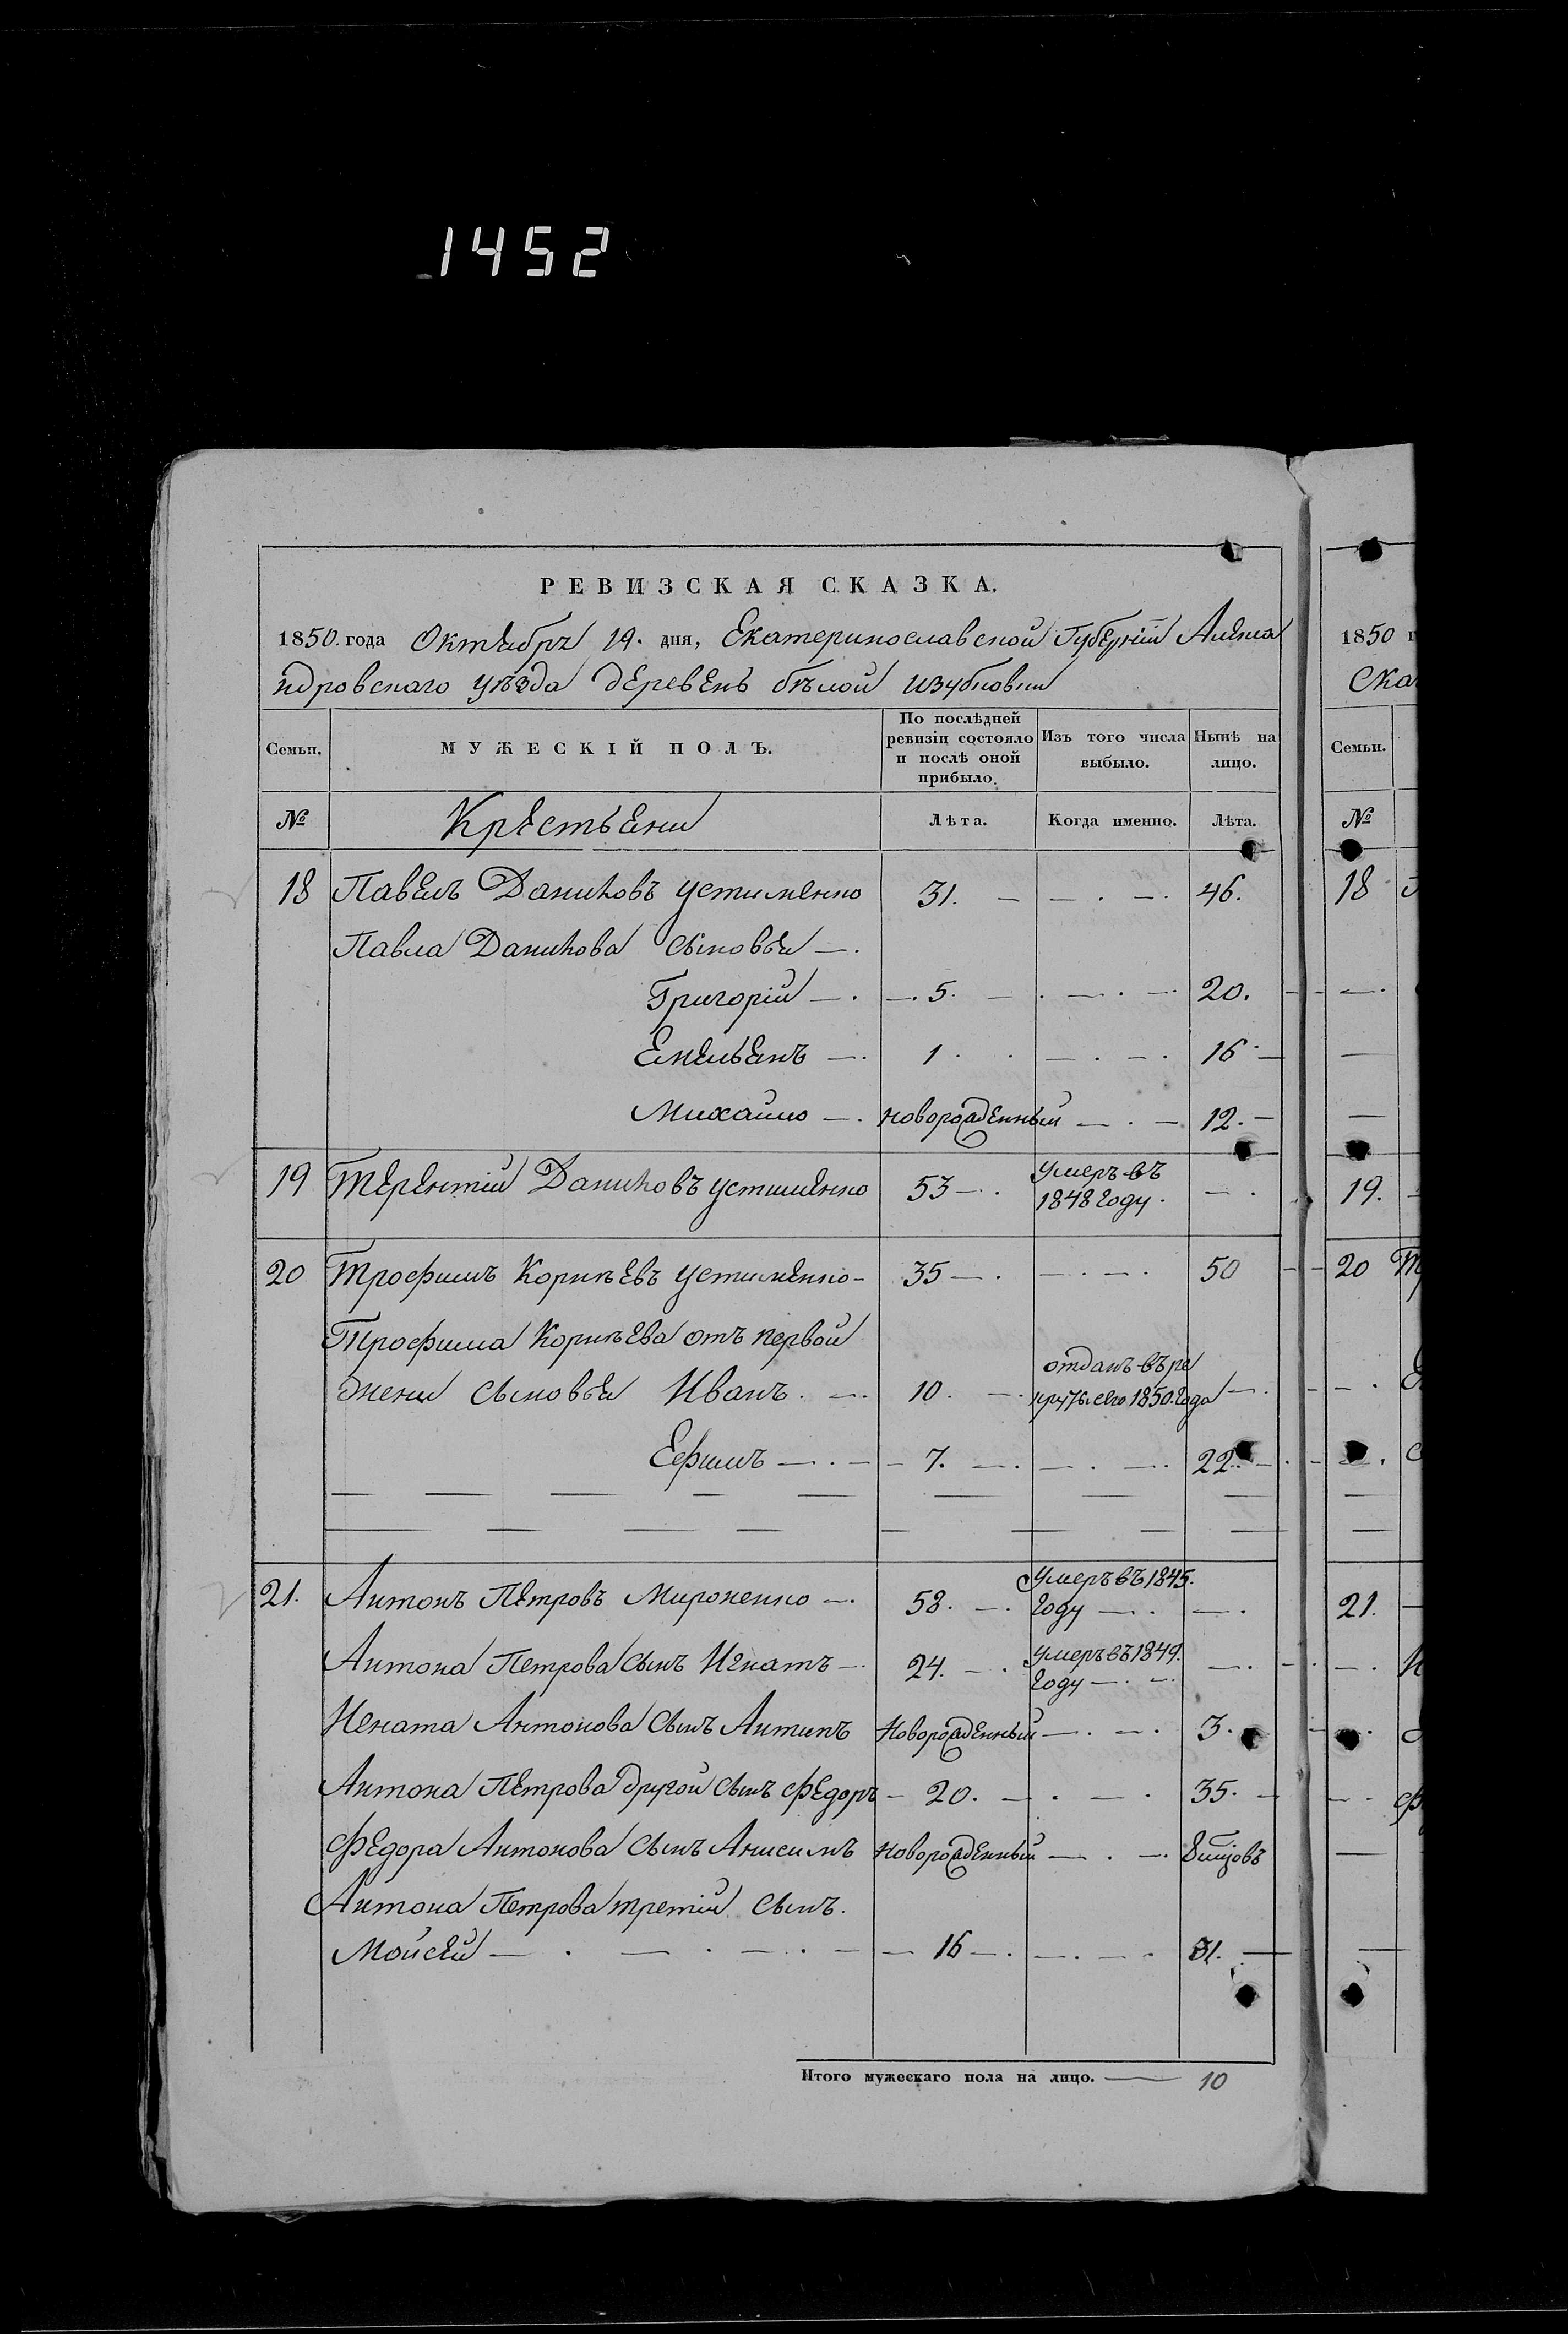 1452
РЕВИЗСКАЯ СКАЗКА.
1850. года Октября 19. дня, Екатеринославской Губерніи Алекса
ндровскаго уѣзда деревень бѣлой
Семьи. МУЖЕСКІЙ ПОЛЪ. По послѣдней ревизіи состояло и послѣ оной прибыло. Изъ того числа выбыло. Нынѣ на лицо.
№ Крестьяни Лѣта. Когда именно. Лѣта.
18 Павелъ Даниловъ устименко 31. — — . — . 46.
Павла Данилова сыновья — .
Григорій — . — . 5. — . — . — . 20.
Емельянъ — . 1 . . — . — . 16 . —
Михайло — . новорожденный — . — 12. —
19 Терентій Даниловъ устименко 53 — . умеръ въ 1848 году . — .
20 Трофимъ Корнѣевъ устименко - 35 — . — . — . 50
Трофима Корнѣева отъ первой
жени сыновья Иванъ . — . 10. — . отданъ въ ре круты сего 1850. года — .
Ефимъ — . — — 7. — . — . — . 22. —
21. Антонъ Петровъ Мироненко — . 58. — . Умеръ въ 1845. году — . — .
Антона Петрова сынъ Игнатъ — . 24. — . Умеръ въ 1849. году — . — . — .
Игната Антонова сынъ Антипъ Новорожденный — . — . 3.
Антона Петрова другой сынъ Федоръ — 20. — . — . 35. —
Федора Антонова сынъ Анисимъ новорожденный — . — .
Антона Петрова третій сынъ.
Мойсей — . — . — . — — 16 — . — . — . 31. —
Итого мужескаго пола на лицо. — 10
1850
Ска
Семьи.
№
18
19.
20 Т
21.